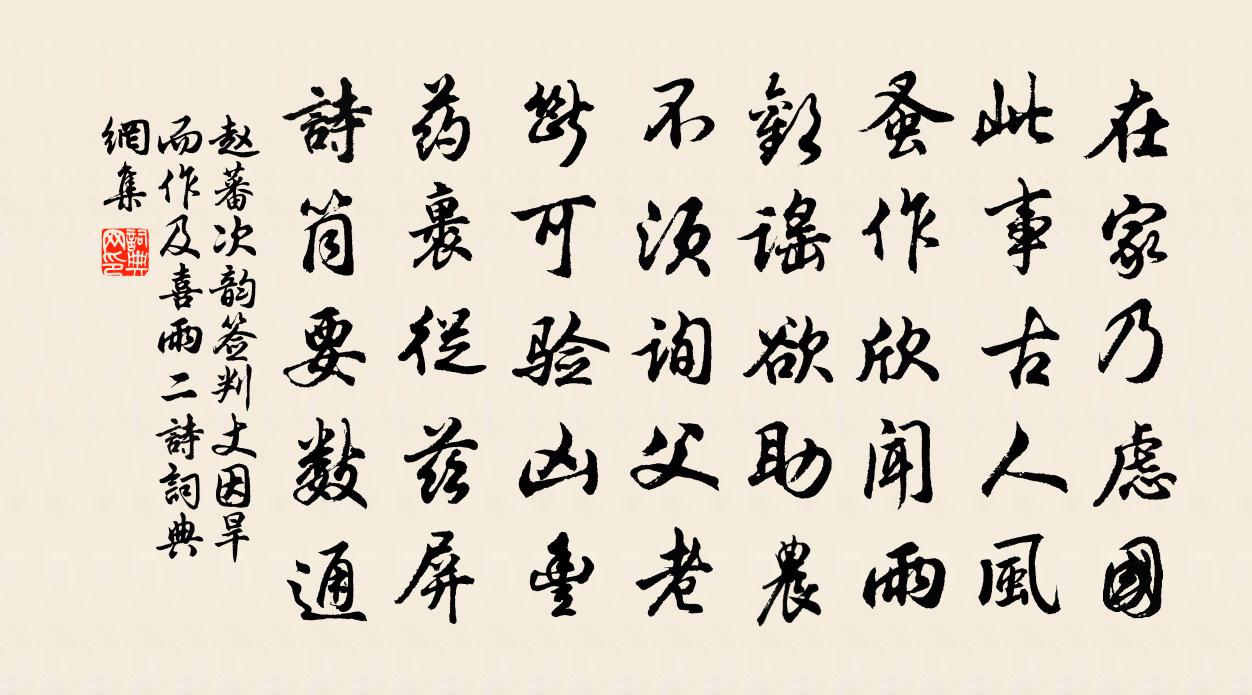 在家乃慮國
此事古人風
蚤作欣聞雨
歡謠欲助農
不須詢父老
斷可验凶豐
药裹從茲屏
詩筒要數通
赵蕃次韵签判丈因旱
而作及喜雨二詩詞典
網集
詞典
网印